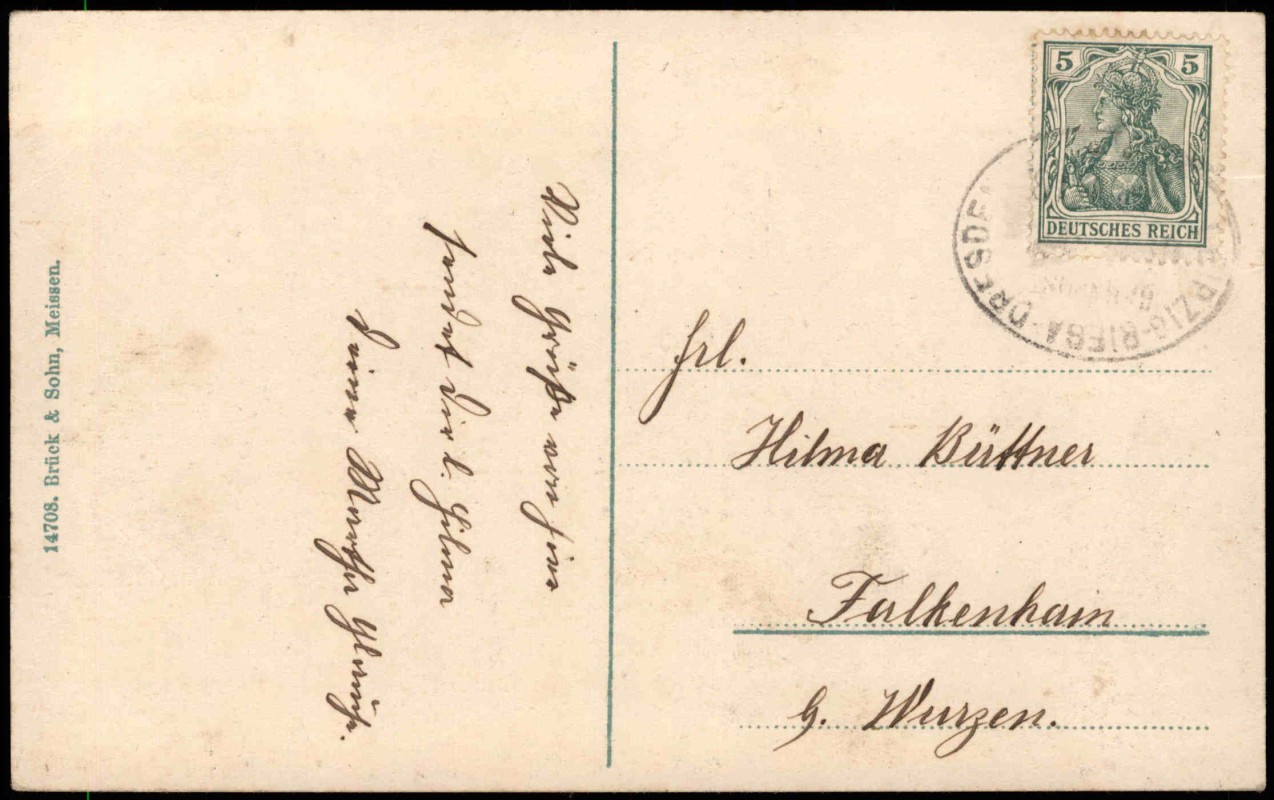 14708. Brück & Sohn, Meissen.
Viele Grüße von hier
sendet Dir l. Hilma
Deine Marthe
5 5
DEUTSCHES REICH
Frl.
Hilma Büttner
Falkenhain
b. Wurzen.